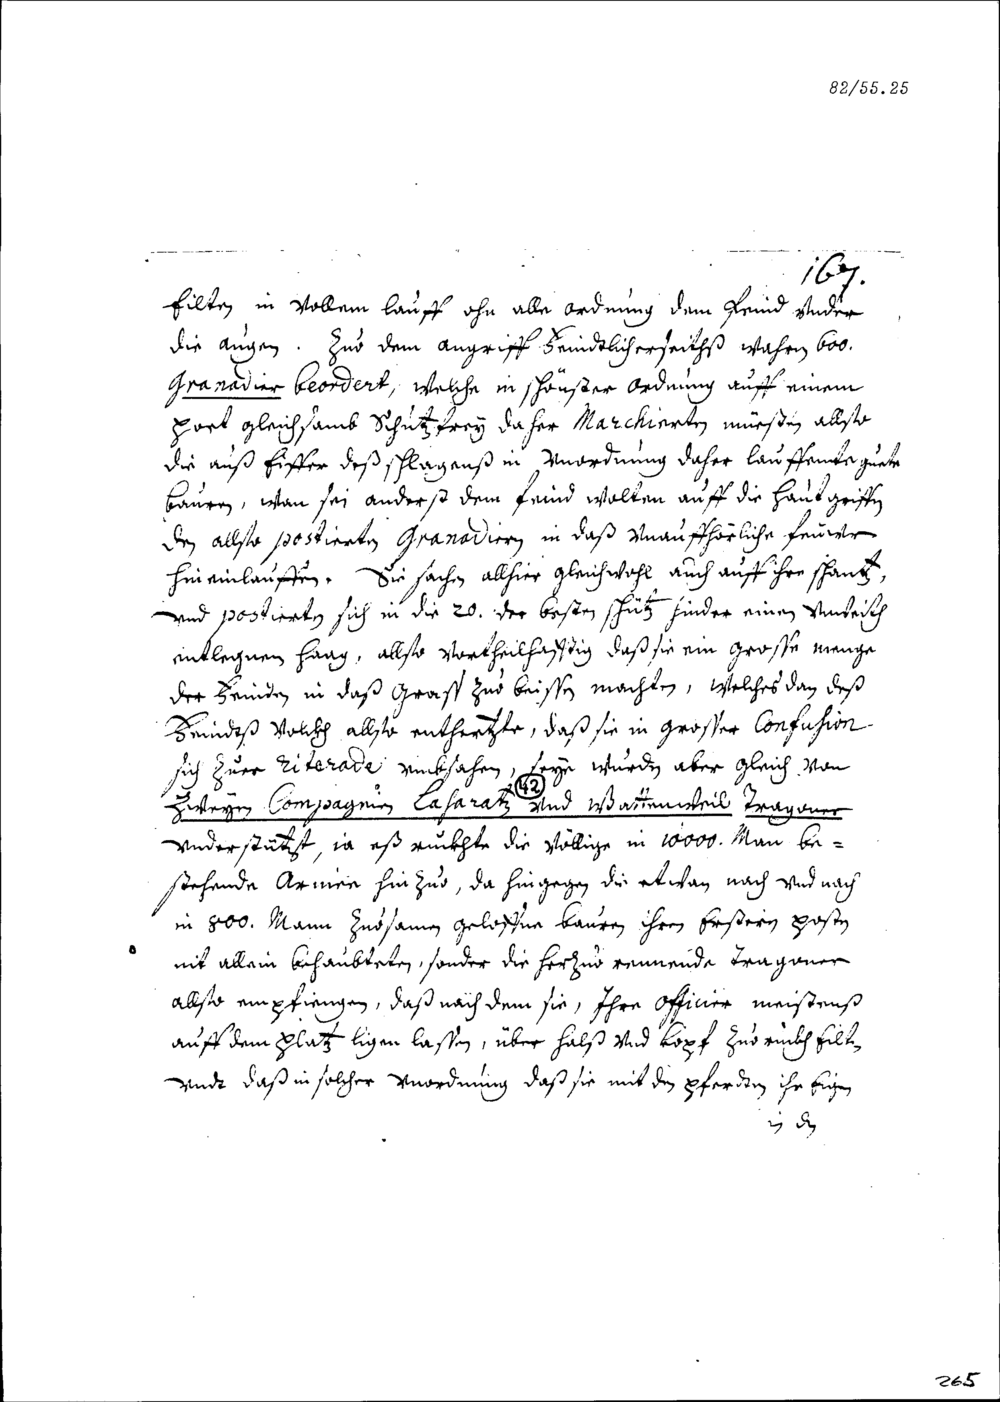 82/55.25
167.
Eilten in Vollem lauff ohn alle ordnung dem feind Under
die augen. Zuo dem angriff Feindtlicherseithß wahren 600.
Granadier beordert, welche in schönster ordnung auff einem
port gleichsamb Schutz frey daher Marchierten müesten allso
die auß Eiffer deß schlagenß in Unordnung daher lauffente guete
bauren, wan sei anderst dem feind wolten auff die haut griffen
den allso postierten Granadiern in daß Unauffhörliche feüwr
hineinlauffen. Sie sachen allhier gleichwohl auch auff ihre schantz,
und postierten sich in die 20. der besten schütz hinder einen
entlegnen haag, allso Vortheilhafftig daß sie ein grosse menge
der Feinden in daß Graß Zuo beissen machten, welches dan deß
Feindtß Volckh allso enthertzte, daß sie in grosser Confusion
sich Zuer riterade umbsahen, seye wurden aber gleich von
42
Zweyen Compagnien Lasaratz Und Wattenweil Tragoner
understützt, ia eß ruckhte die Völlige in 10000. Man be=
stehende Armee hinzuo, da hingegen die etwan nach und nach
in 800. Mann Zuosamen geloffne bauren ihren Erstern posten
nit allein behaubteten, sonder die herzuo rennende Tragoner
allso empfiengen, daß nach dem sie, Ihre officier meistenß
auff dem platz ligen lassen, über halß Und kopf Zuo ruckh Eilten
undt daß in solcher Unordnung daß sie mit den pferdten ihr Eigen
in den
265